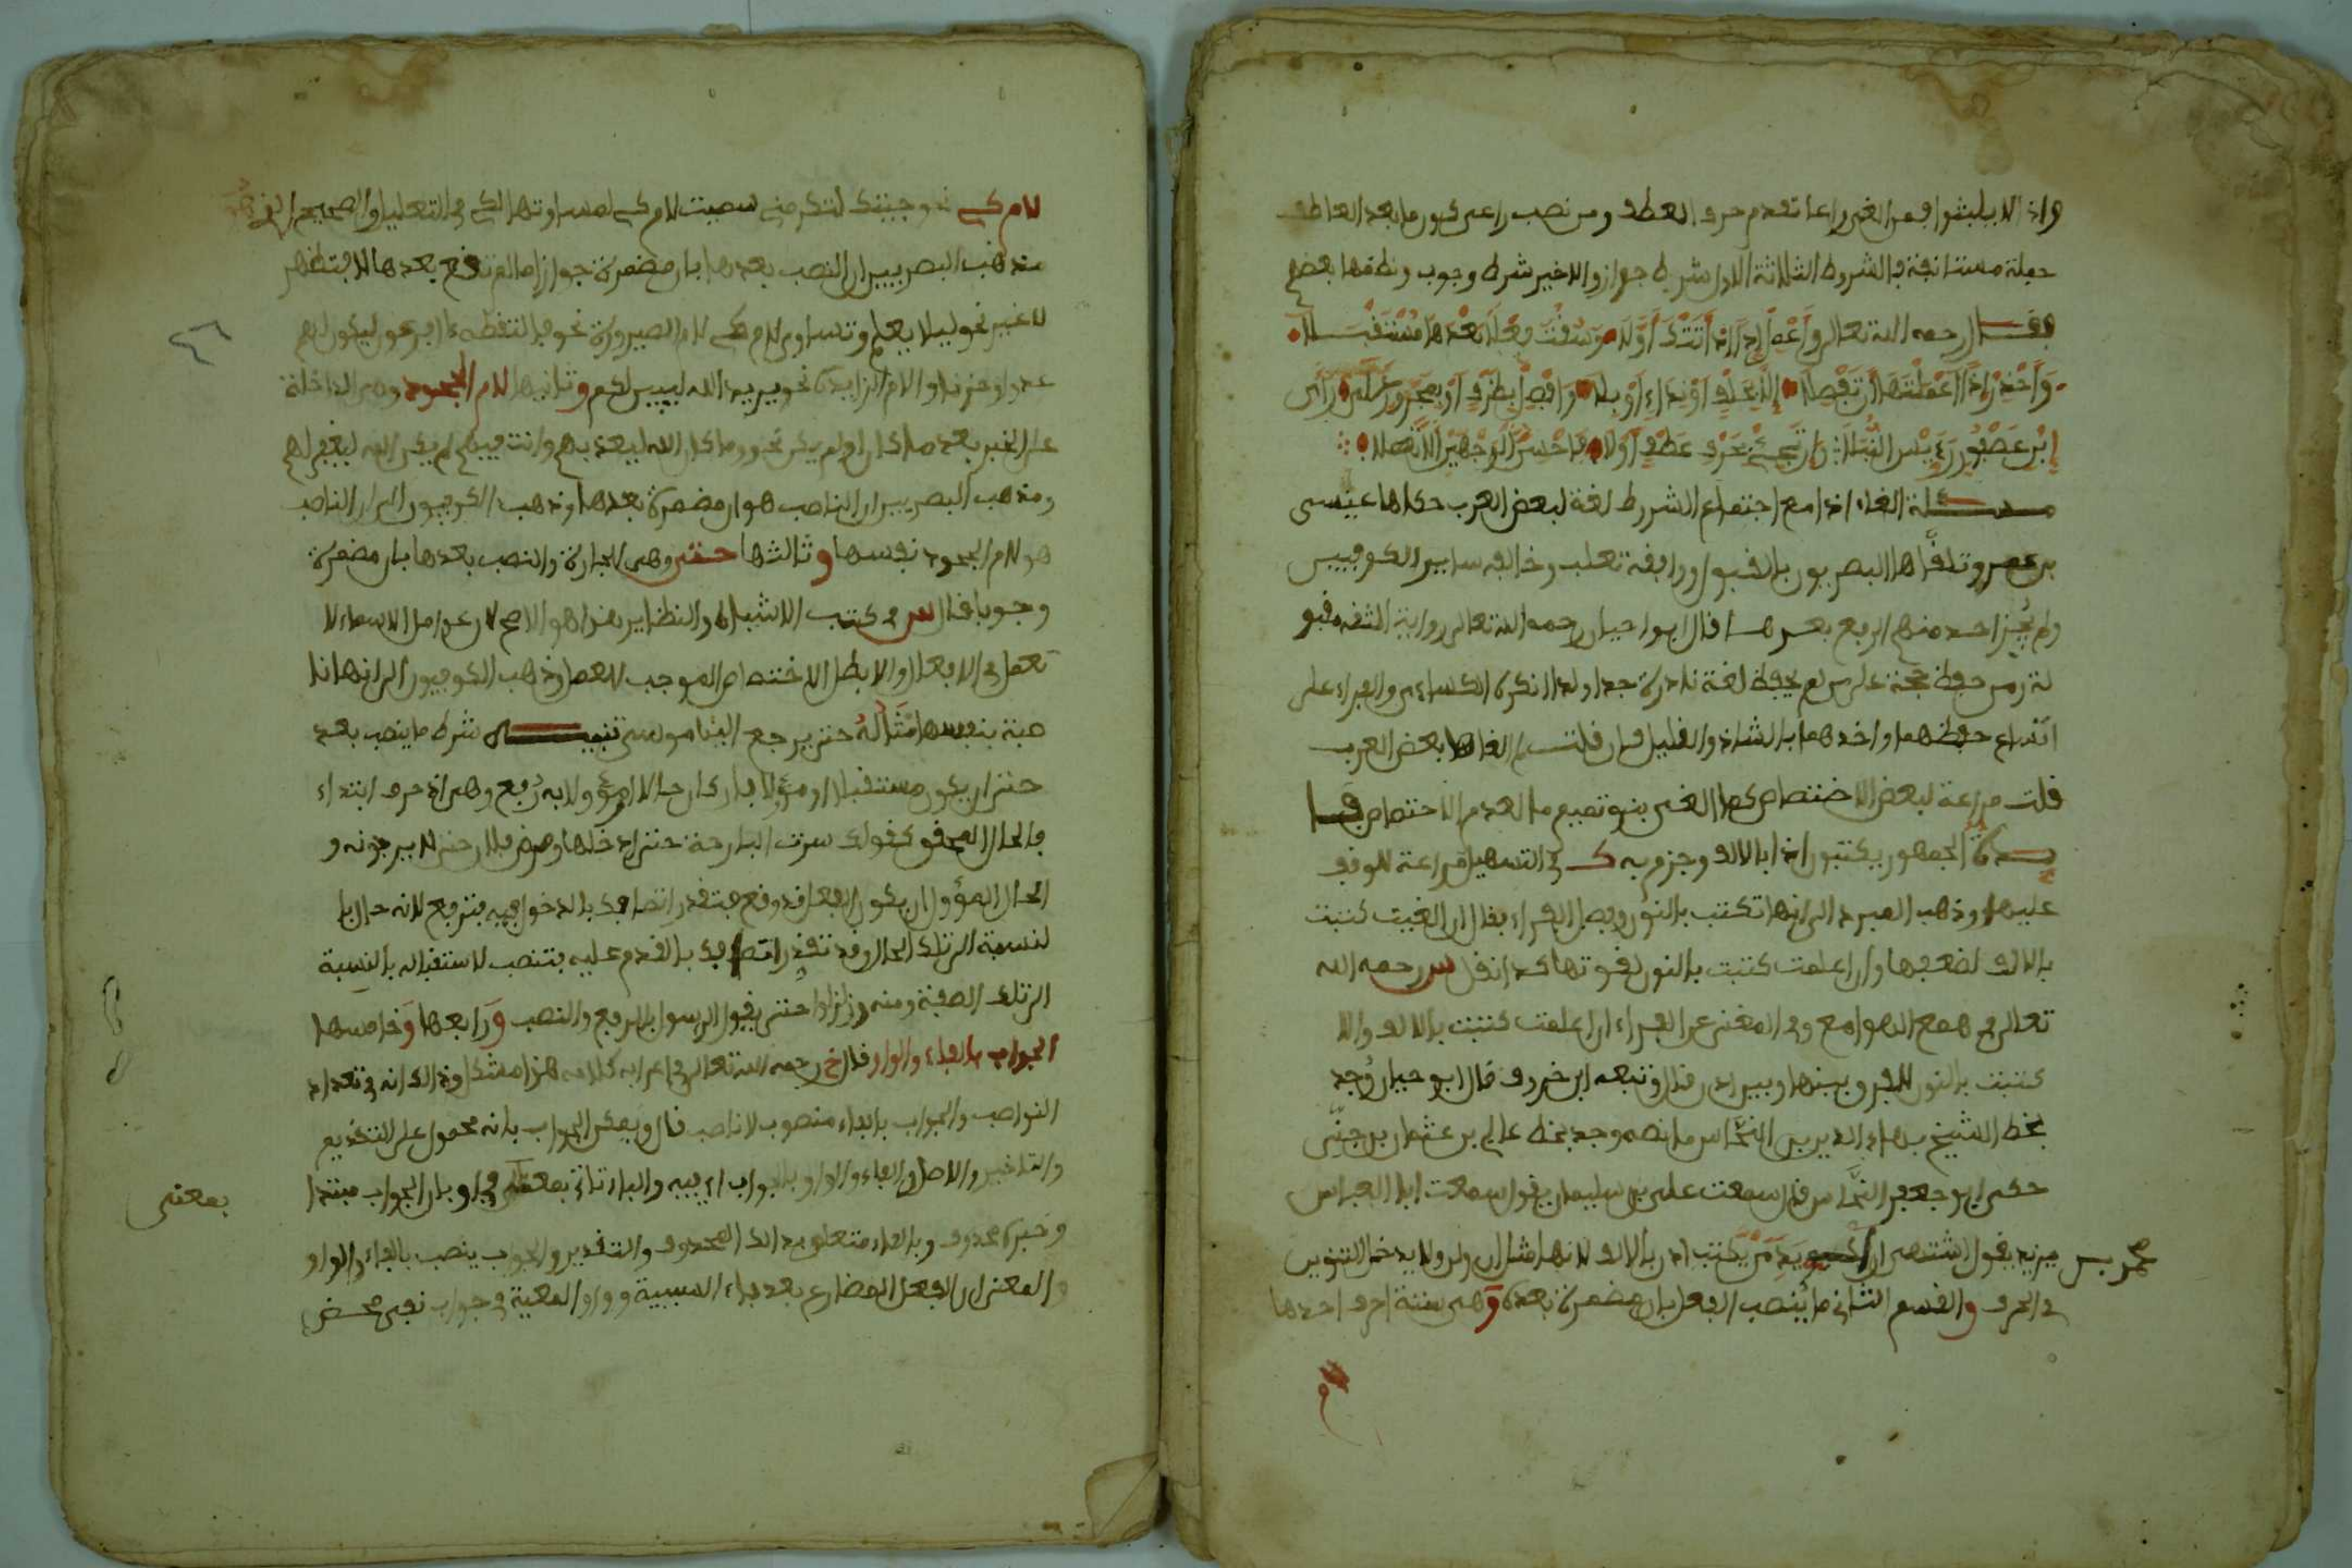 واذا لا يلبثوا فمن الغى راعا تقدم حرف العطف ومن نصب راعى كون ما بعد العاطف
جملة مستانفة فالشروط الثلاثة الاول شرط جواز والاخير شرط وجوب ونظمها بعضهم
فقال رحمه الله تعالى وَأَعْمِلْ إِذَنْ إِذَا أَتَتْكَ أَوَّلَا وَسُقْتَ فِعْلًا بَعْدَهَا مُسْتَقْبَلَا
وَاحْذَرْ إِذَا أَعْمَلْتَهَا أَنْ تَفْصِلَا إِلَّا بِحَلْفٍ أَوْ نِدَاءٍ أَوْ بِلَا وَافْصِلْ بِظَرْفٍ أَوْ بِمَجْرُورٍ عَلَى رَأْيِ
ابْنِ عُصْفُورٍ رَئِيسِ النُّبَلَا وَإِنْ تَجِئْ بِحَرْفِ عَطْفٍ أَوَّلَا فَأَحْسَنُ الْوَجْهَيْنِ أَلَّا تَعْمَلَا
مسئلة الغاء اذا مع اجتماع الشروط لغة لبعض العرب حكاها عيسى
بن عمر وتلقاها البصريون بالقبول ووافقه ثعلب وخالفه ساير الكوفيين
ولم يجز احد منهم الرفع بعدها قال ابو حيان رحمه الله تعالى رواية الثقة مقبو
لة ومن حفظ حجة على من لم يحفظ لغة نادرة جدا ولذا انكرها الكساءي والفراء على
اتساع حفظهما واخذهما بالشاذ والقليل فان قلت لم الغاها بعض العرب
قلت مراعة لبعض الاختصاص كما الغى بنو تميم ما لعدم الاختصاص
فايدة الجمهور يكتبون اذا بالالف وجزم به ك في التسهيل مراعة للوقف
عليها وذهب المبرد الى انها تكتب بالنون وفصل الفراء فقال ان الغيت كتبت
بالالف لضعفها وان اعلمت كتبت بالنون لقوتها كذا نقل س رحمه الله
تعالى في همع الهوامع وفى المغنى عن الفراء ان اعلمت كتبت بالالف والا
كتبت بالنون للفرق بينها وبين اذا قال وتبعه ابن خروف قال ابو حيان وُجد
بخط الشيخ بهاء الدين بن النحّاس ما نصه وجد بخط عالى بن عثمان بن جنّى
حكى ابو جعفر النحّاس قال سمعت على بن سليمان يقول سمعت ابا العباس
محمد بن يزيد يقول اشتهى ان أكوى يد من يكتب اذن بالالف لانها مثل ان ولن ولا يدخل التنوين
فى الحرف والقسم الثانى ما يُنصب الفعل بان مضمرة بعده وهى ستة احرف احدها
لام كے نحو جيتك لتكرمنے سميت لام كے لمساوتها لكے في التعليل والصحيح
مذهب البصريين ان النصب بعدها بان مضمرة جوازا ما لم تقع بعدها لا فتظهر
لا غير نحو ليلا يعلم وتساوى لام كے لام الصيرورة نحو فالتقطه ءال فرعون ليكون لهم
عدوا وحزنا والام الزايدة نحو يريد الله ليبين لكم وثانيها لام الجحود وهى الداخلة
على الخبر بعد ما كان او لم يكن نحو وما كان الله ليعذبهم وانت فيهم لم يكن الله ليغفر لهم
ومذهب البصريين ان الناصب هو ان مضمرة بعدها وذهب الكوفيون الى ان الناصب
هو لام الجحود نفسها وثالثها حتى وهى الجارة والنصب بعدها بان مضمرة
وجوبا قال س في كتب الاشباه والنظاير هذا هو الاصح لان عوامل الاسماء لا
تعمل فى الافعال والا بطل الاختصاص الموجب للعمل وذهب الكوفيون الى انها نا
صبة بنفسها مِثَالُهُ حتى يرجع الينا موسى تنبيه شرط ما ينصب بعد
حتى ان يكون مستقبلا او مؤولا فان كان حالا او مؤولا به رُفع وهى اذ حرف ابتداء
فالحال المحقق كقولك سرت البارحة حتى ادخلها ومرض فلان حتى لا يرجونه و
الحال المؤول ان يكون الفعل قد وقع فتقدر اتصافك بالدخول فيه فترفع لانه حال با
لنسبة الى تلك الحال وقد تقدر اتصافك بالقدم عليه فتنصب لاستقباله بالنسبة
الى تلك الصفة ومنه وزلزلوا حتى يقول الرسول بالرفع والنصب ورابعها وخامسها
الجواب بالفاء والواو قال خ رحمه الله تعالى في اعرابه كلامه هذا مشكل وذالك انه فى تعداد
النواصب والجواب بالفاء منصوب لا ناصب قال ويمكن الجواب بانه محمول على التقديم
والتاخير والاصل والفاء والواو بالجواب اى فيه والباء تاتى بمعنى في او بان الجواب مبتدا
بمعنى
وخبره محذوف وبالفاء متعلق بذالك المحذوف والتقدير والجواب ينصب بالفاء والواو
والمعنى ان الفعل المضارع بعد فاء السببية وواو المعية في جواب نفى محض